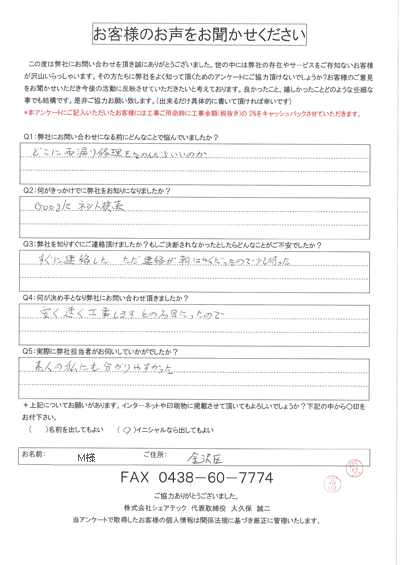 お客様のお声をお聞かせください
この度は弊社にお問い合わせを頂き誠にありがとうございました。世の中には弊社の存在やサービスをご存知ないお客様
が沢山いらっしゃいます。その方たちに弊社をよく知って頂くためのアンケートにご協力頂けないでしょうか?お客様のご意見
をお聞かせいただき今後の活動に反映させていただきたいと考えております。良かったこと、嬉しかったことどのような些細な
事でも結構です。是非ご協力お願い致します。(出来るだけ具体的に書いて頂ければ幸いです)
*本アンケートにご記入いただいたお客様には工事ご用命時に工事金額(税抜き)の 2%をキャッシュバックさせていただきます。
Q1:弊社にお問い合わせになる前にどんなことで悩んでいましたか?
どこに雨漏り修理をたのんだらいいのか
Q2:何がきっかけでに弊社をお知りになりましたか?
Google ネット検索
Q3:弊社を知りすぐにご連絡頂けましたか?もしご決断されなかったとしたらどんなことがご不安でしたか?
すぐに連絡した ただ連絡が朝はやくだったので少し待った
Q4:何が決め手となり弊社にお問い合わせ頂きましたか?
安く速く工事しますとの
Q5:実際に弊社担当者がお伺いしていかがでしたか?
素人の私にも分かりやすかった
*上記についてお願いがあります。インターネットや印刷物に掲載させて頂いてもよろしいでしょうか?下記の中から○印を
お付下さい。
( )名前を出してもよい (○)イニシャルなら出してもよい
お名前: M様 ご住所: 金沢区
FAX 0438-60-7774
ご協力ありがとうございました。
株式会社シェアテック 代表取締役 大久保 誠二
当アンケートで取得したお客様の個人情報は関係法規に基づき厳正に管理いたします。